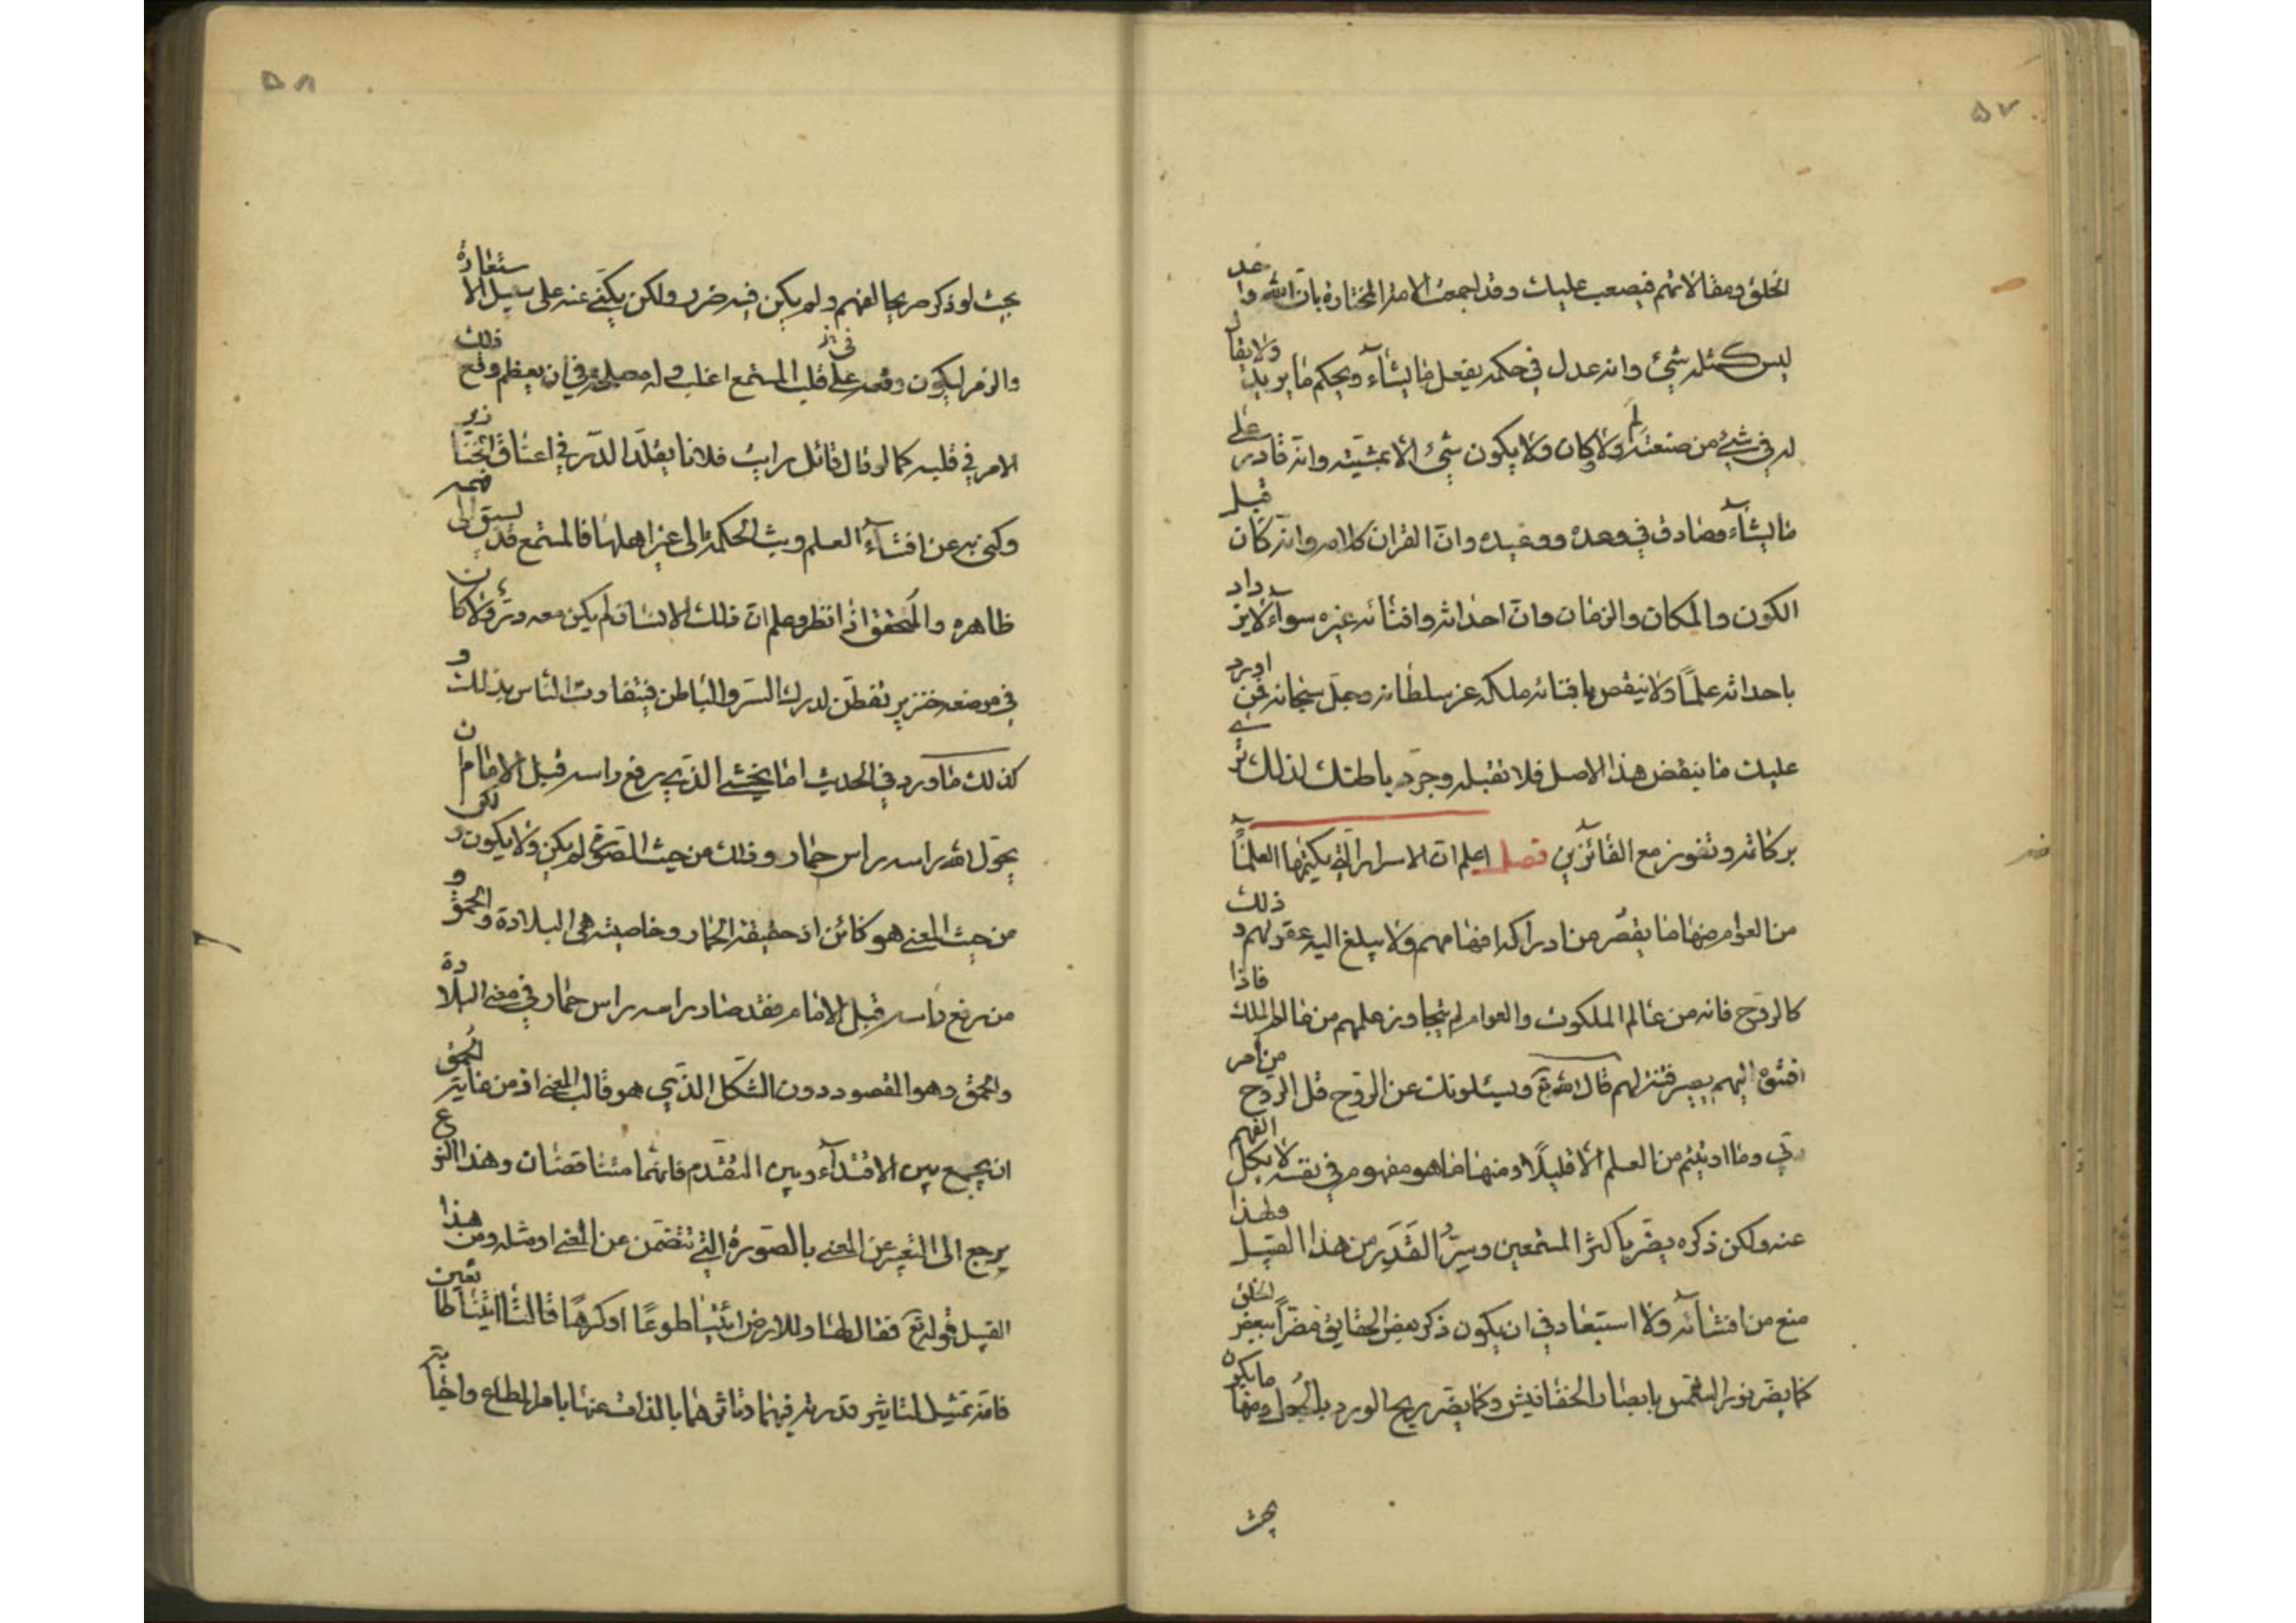 ٥٧
الخلق ومقالاتهم فيصعب عليك وقد اجمعت الامة المختارة بان الله واحد
ليس كمثله شيء وانه عدل في حكمه يفعل ما يشآء ويحكم ما يريد ولا يقال
له في شيء من صنعته لم ولا كان ولا يكون شيء الا بمشيته وانه قادر على
ما يشآء صادق في وعده ووعيده وان القران كلامه وانه كان قبل
الكون والمكان والزمان وان احداثه وافنائه غيره سوآء لا يزداد
باحداثه علمًا ولا ينقص بافنائه ملكه عز سلطانه وجل سبحانه فمن اورد
عليك ما ينقض هذا الاصل فلا تقبله وجرد باطنك لذلك ترى
بركاته وتفوز مع الفائزين فصل اعلم ان الاسرار التي يكتمها العلمآء
من العوام منها ما يقصر من ادراكه افهامهم ولا يبلغ اليه عقولهم وذلك
كالروح فانه من عالم الملكوت والعوام لم يتجاوز علمهم من عالم الملك فاذا
افشوه اليهم يصير فتنة لهم قال الله تع ويسئلونك عن الروح قل الروح من امر
ربي وما اوتيتم من العلم الا قليلًا ومنها ما هو مفهوم في نفسه لا يكل الفهم
عنه ولكن ذكره يضر باكثر المستمعين وسر القدر من هذا القبيل ولهذا
منع من افشائه ولا استبعاد في ان يكون ذكر بعض الحقايق مضرًا ببعض الخلق
كما يضر نور الشمس بابصار الخفافيش وكما يضر ريح الورد بالجعل ومنها ما يكون
بحيث
٥٨
بحيث لو ذكر صريحا لفهم ولم يكن فيه ضرر ولكن يكنى عنه على سبيل الاستعارة
والرمز ليكون وقعه على قلب المستمع اغلب وله مصلحة في ان يعظم وقع ذلك
الامر في قلبه كما لو قال قائل رايت فلانا يقلد الدر في اعناق الخنازير
وكنى به عن افشآء العلم وبث الحكمة الى غير اهلها فالمستمع قد يسبق الى فهمه
ظاهره والمحقق اذا نظر وعلم ان ذلك الانسان لم يكن معه در ولا كان
في موضعه خنزير تفطن لدرك السر والباطن فيتفاوت الناس بذلك و
كذلك ما ورد في الحديث اما يخشى الذي يرفع راسه قبل الامام ان
يحول الله راسه راس حمار وذلك من حيث الصورة لم يكن ولا يكون ولكن
من حيث المعنى هو كائن اذ حقيقة الحمار وخاصيته هي البلادة والحمق و
من رفع راسه قبل الامام فقد صار راسه راس حمار في معنى البلادة
والحمق وهو المقصود دون الشكل الذي هو قالب المعنى اذ من غاية الحمق
ان يجمع بين الاقتدآء وبين التقدم فانهما متناقضان وهذا النوع
يرجع الى التعبير عن المعنى بالصورة التي تتضمن عن المعنى او مثله ومن هذا
القبيل قوله تع فقال لها وللارض ائتيا طوعًا او كرهًا قالتا اتينا طائعين
فانه تمثيل لتاثير قدرته فيهما وتاثرهما بالذات عنها بامر المطاع واجابة